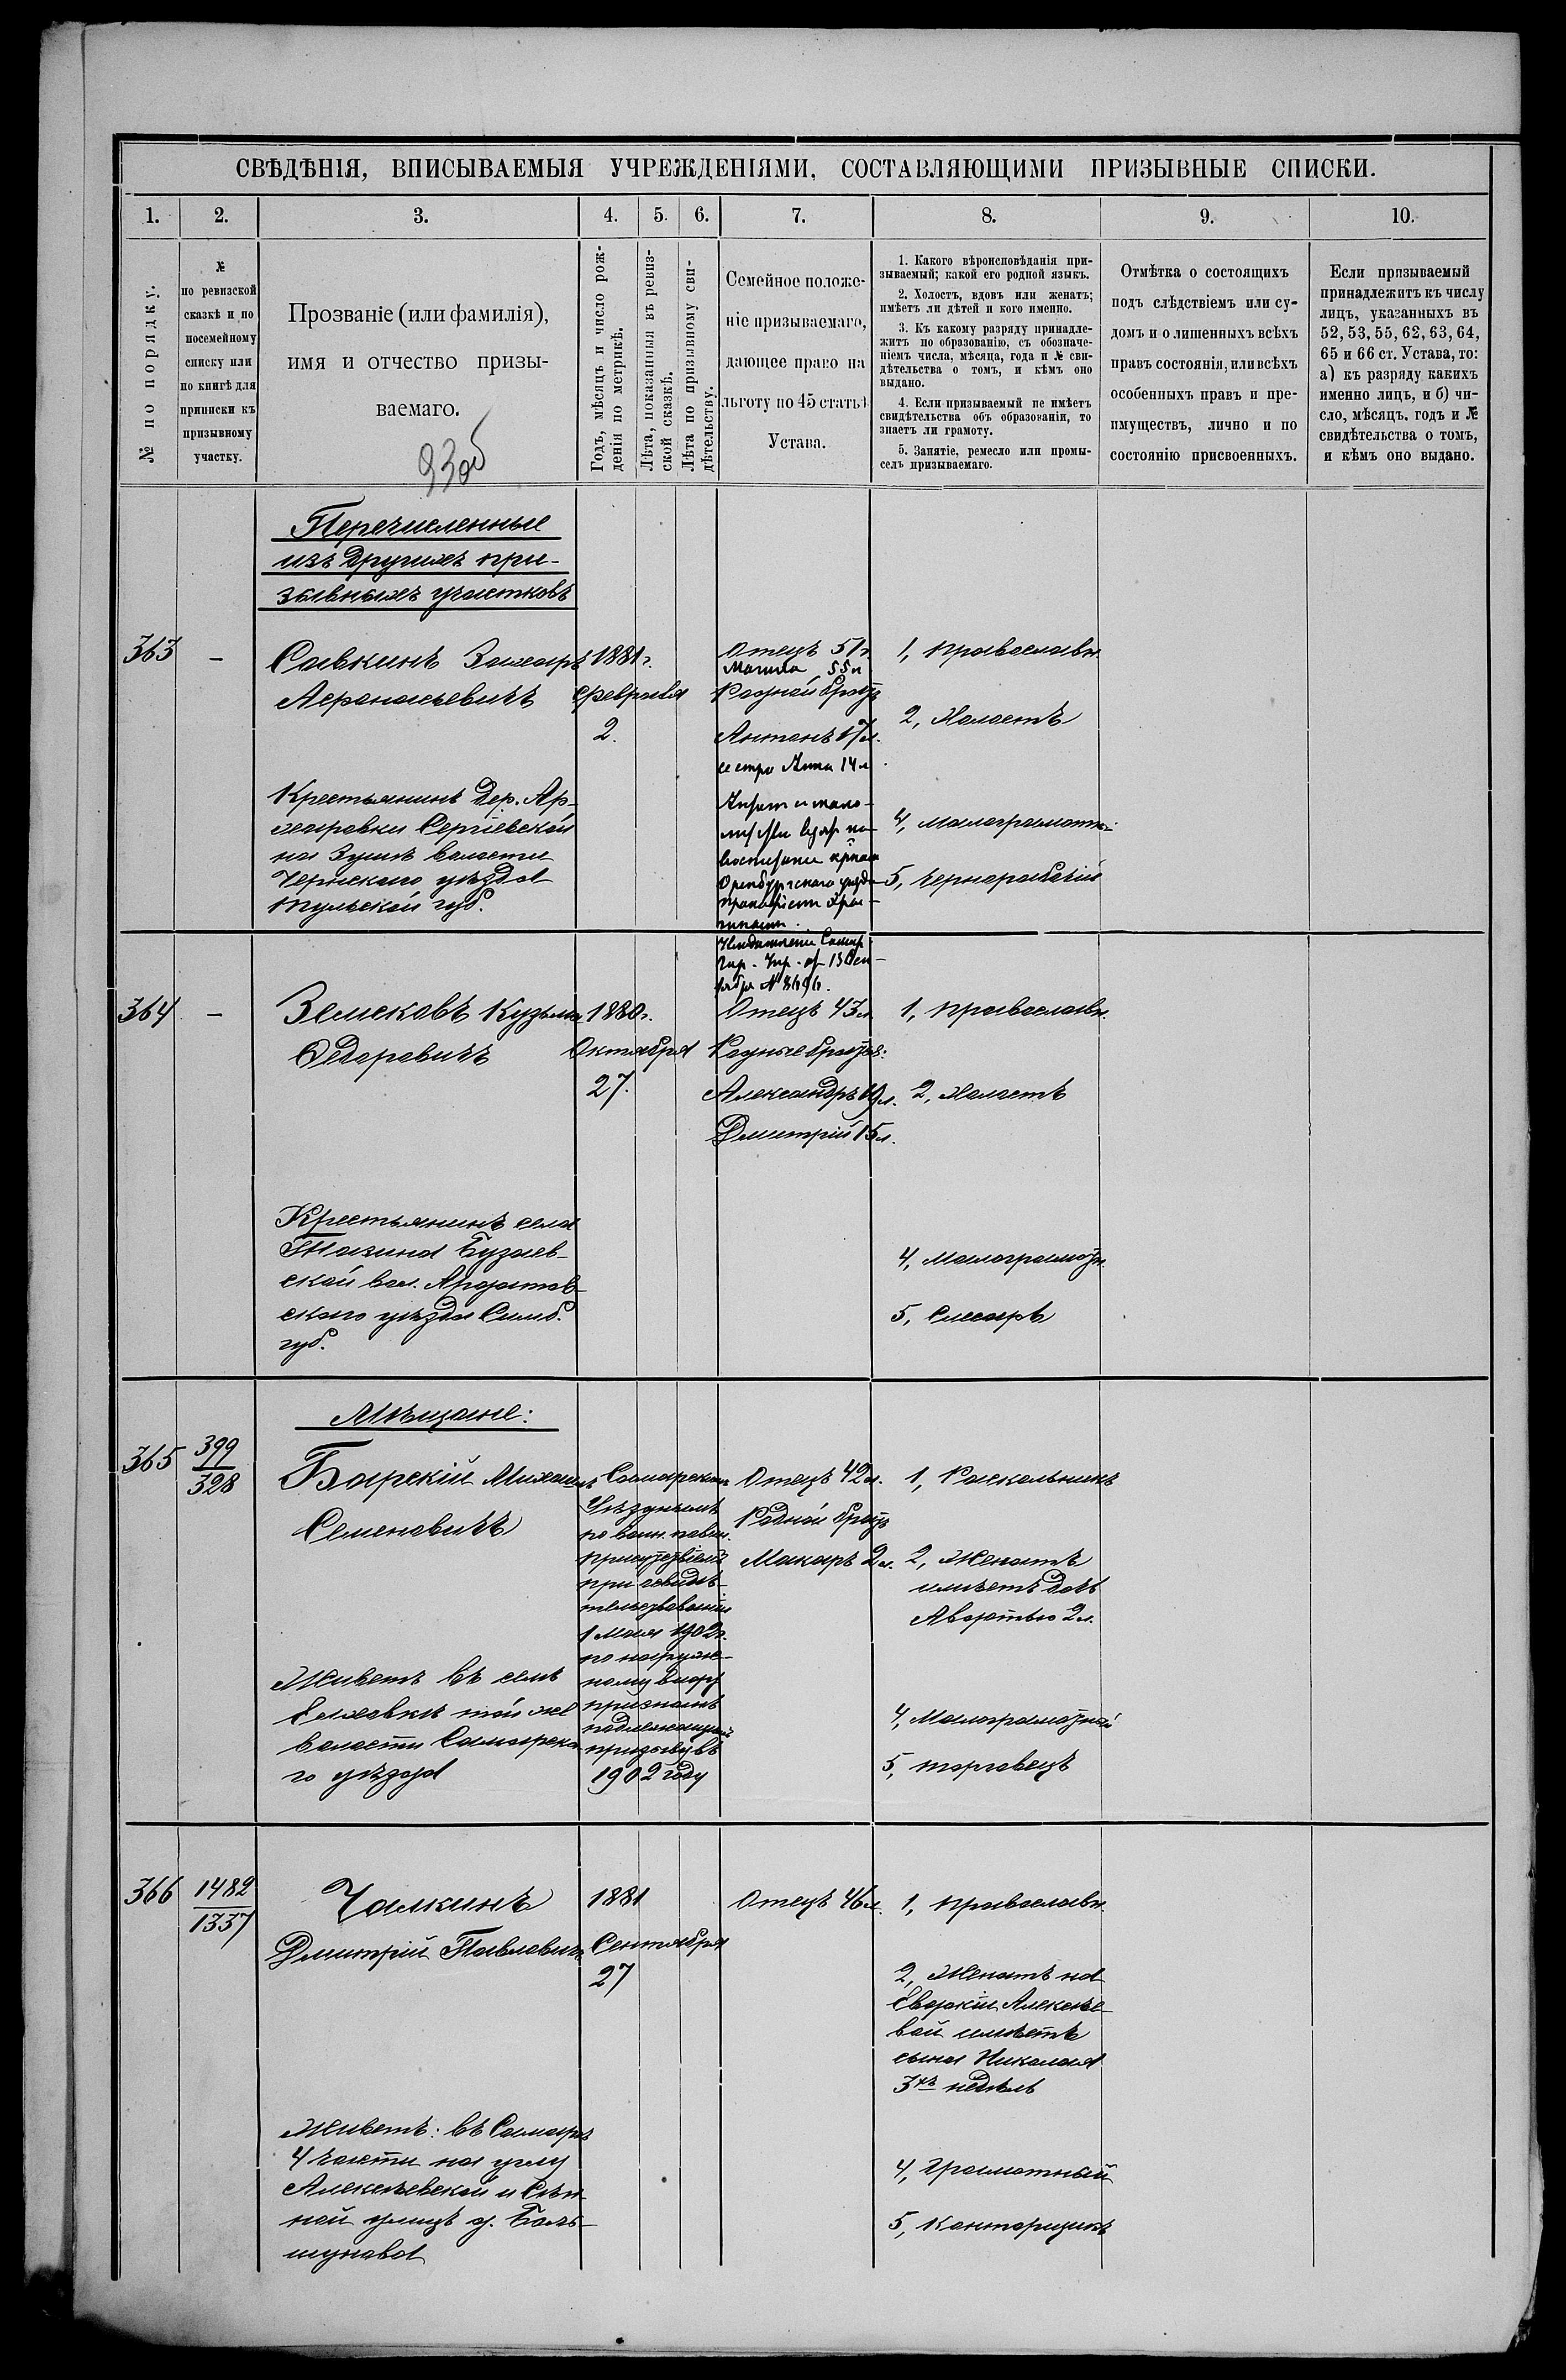 СВѢДѢНІЯ, ВПИСЫВАЕМЫЯ УЧРЕЖДЕНІЯМИ, СОСТАВЛЯЮЩИМИ ПРИЗЫВНЫЕ СПИСКИ.
1. 2. 3. 4. 5. 6. 7. 8. 9. 10.
№ по порядку.
№
по ревизской
сказкѣ и по
посемейному
списку или
по книгѣ для
приписки къ
призывному
участку.
Прозваніе (или фамилія),
имя и отчество призы-
ваемаго.
93об
Годъ, мѣсяцъ и число рож-
денія по метрикѣ.
Лѣта, показанныя въ ревиз-
ской сказкѣ.
Лѣта по призывному сви-
дѣтельству.
Семейное положе-
ніе призываемаго,
дающее право на
льготу по 45 статьѣ
Устава.
1. Какого вѣроисповѣданія при-
зываемый; какой его родной языкъ.
2. Холостъ, вдовъ или женатъ;
имѣетъ ли дѣтей и кого именно.
3. Къ какому разряду принадле-
житъ по образованію, съ обозначе-
ніемъ числа, мѣсяца, года и № сви-
дѣтельства о томъ, и кѣмъ оно
выдано.
4. Если призываемый не имѣетъ
свидѣтельства объ образованіи, то
знаетъ ли грамоту.
5. Занятіе, ремесло или промы-
селъ призываемаго.
Отмѣтка о состоящихъ
подъ слѣдствіемъ или су-
домъ и о лишенныхъ всѣхъ
правъ состоянія, или всѣхъ
особенныхъ правъ и пре-
имуществъ, лично и по
состоянію присвоенныхъ.
Если призываемый
принадлежитъ къ числу
лицъ, указанныхъ въ
52, 53, 55, 62, 63, 64,
65 и 66 ст. Устава, то:
а) къ разряду какихъ
именно лицъ, и б) чи-
сло, мѣсяцъ, годъ и №
свидѣтельства о томъ,
и кѣмъ оно выдано.
Перечисленные
изъ другихъ при-
зывныхъ участковъ
363
–
Савкинъ Захаръ
Афанасьевичъ
Крестьянинъ дер. Ар-
Сергіевской
на Зушѣ волости
Чернскаго уѣзда
Тульской губ.
1881 г.
Февраля
2.
Отецъ 51 г.
55 л
Родной братъ
Антонъ 17 л.
сестра Анна 14 л
Оренбургскаго уѣзда
1, православн.
2, Холостъ
4, малограмотн.
5, чернорабочій
364
–
Земсковъ Кузьма
Федоровичъ
Крестьянинъ села
Тазина Бузаев-
ской вол. Ардатов-
скаго уѣзда Симб.
губ.
1880 г.
Октября
27.
Отецъ 43 л.
Родные братья:
Александръ 19 л.
Дмитрій 15 л.
1, православн.
2, Холостъ
4, Малограмотн.
5, Слесарь
Мѣщане:
365
399
328
Барскій Михаилъ
Семеновичъ
Живетъ въ селѣ
Елховкѣ той же
волости Самарска-
го уѣзда
Самарскимъ
Уѣзднымъ
по воин. повин.
присутствіемъ
при освидѣ-
тельствованіи
1 Мая 1902 г.
по наруж-
ному виду
признанъ
подлежащимъ
призыву въ
1902 году
Отецъ 42 л.
Родной братъ
Макаръ 2 л.
1, Раскольникъ
2, Женатъ
имѣетъ дочь
Авдотью 2 л.
4, Малограмотный
5, торговецъ
366
1482
1337
Чалкинъ
Дмитрій Павловичъ
Живетъ: въ Самарѣ
4 части на углу
Алексѣевской и Сѣн-
ной улицъ д. Боль-
шунова
1881
Сентября
27
Отецъ 46 л.
1, православн.
2, Женатъ на
Евдокіи Алексѣе-
вой имѣетъ
сына Николая
3хъ недѣль
4, Грамотный
5, Конторщикъ